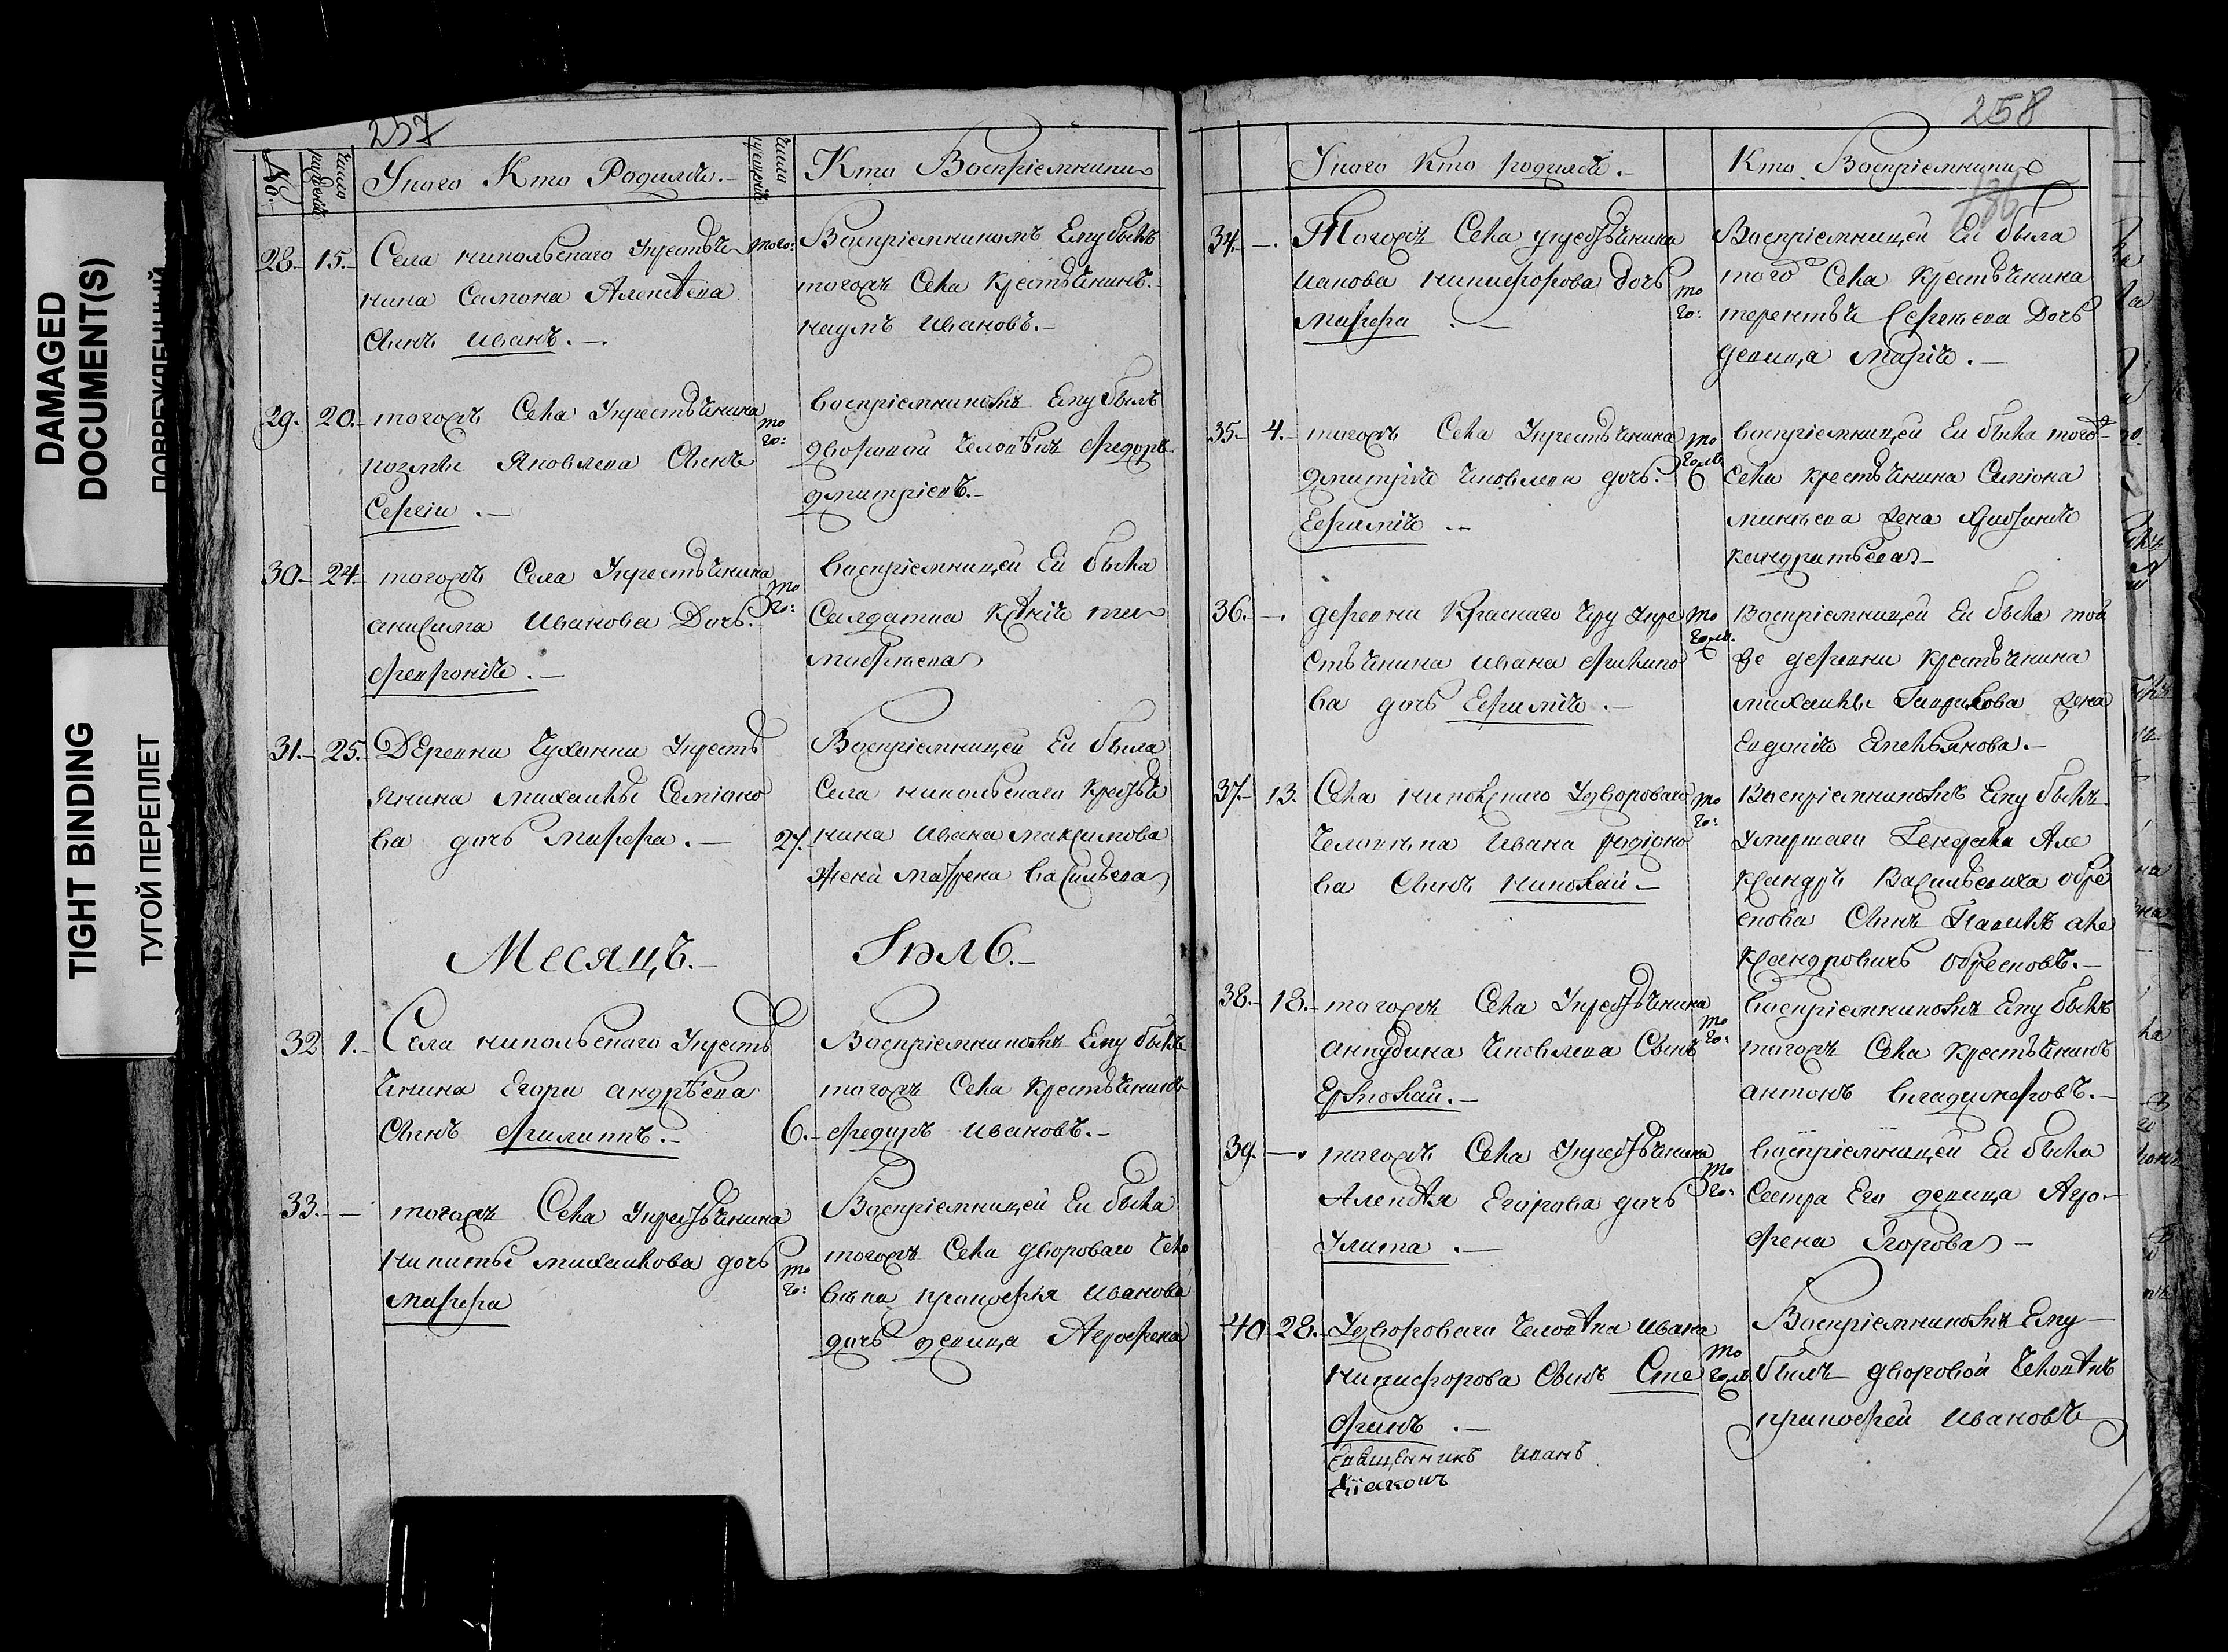 DAMAGED
DOCUMENT(S)
TIGHT BINDING
ТУГОЙ ПЕРЕПЛЕТ
257
No.
числа рождений
Укого Кто Родился.
числа крещений
Кто Восприемники
28. 15. Села никольскаго Укрестья
нина Симона Алексѣева
Сынъ Иванъ.
того:
Воспріемникомъ Ему былъ
тогожъ Села Крестьянинъ
наумъ Ивановъ.
29. 20. тогожъ Села Укрестьянина
козмы Яковлева Сынъ
Сергеи
то
го:
воспріемникомъ Ему былъ
дворовой человѣкъ Федоръ
дмитріевъ.
30. 24. тогожъ Села Укрестьянина
анисима Иванова Дочь.
февронія.
то
го:
воспріемницей Ей была
Салдатка Ксѣнія ти
мофѣева
31. 25. Деревни Чухонки Укресть
янина михаилы Семіоно
ва дочь марфа.
27.
Воспріемницей Ей была
Села никольскаго Кресьтя
нина Ивана максимова
Жена матрена васильева
Месяцъ. Іюль.
32 1. Села никольскаго Укресть
янина Егора андрѣева
Сынъ филиппъ.
6.
Воспріемникомъ Ему былъ
тогожъ Села Крестьянинъ
федоръ Ивановъ.
33. тогожъ Села Укрестьянина
никиты михаилова дочь
марфа
то
го:
Воспріемницей Ей была
тогожъ Села двороваго чело
вѣка прокофья Иванова
дочь девица Агрофена
258
136
Укого Кто родился.
Кто Воспріемники
34. Тогожъ Села укрестьянина
Иакова никифорова дочь
марфа
то
го:
Воспріемницей Ей была
того Села Крестьянина
терентья Сергеева Дочь
девица марія.
35. 4. тогожъ Села Укрестьянина
дмитрія яковлева дочь.
Ефимія
то
гожъ
воспріемницей Ей была того
Села крестьянина Симіона
жена
кандратьева
36. деревни Краснаго Яру Укре
стьянина ивана филипо
ва дочь Ефимія.
то
гожъ.
Воспріемницей Ей была той
же деревни крестьянина
михаилы Гаврилова жена
Евдокія Емельянова.
37. 13. Села никольскаго Удвороваго
Человѣка Ивана родіоно
ва Сынъ николай
то
го:
Воспріемникомъ Ему былъ
умершаго Генерала Але
ксандръ Васильевича обре
скова Сынъ Павилъ але
ксандровичь обресковъ.
38. 18. тогожъ Села Укрестьянина
анкудина яковлева Сынъ
Ермолай.
то
го:
воспріемникомъ Ему былъ
тогожъ Села крестьянинъ
антонъ владимеровъ.
39. тогожъ Села Укрестьянина
Алексѣя Егорова дочь
Улита.
то
го:
воспріемницей Ей была
Сестра Его девица Агро
фена Егорова
40 28. Удвороваго человѣка ивана
никифорова Сынъ Сте
фанъ.
то
гожъ
Воспріемникомъ Ему
былъ дворовой человѣкъ
прокофей Ивановъ
Священникъ Иванъ